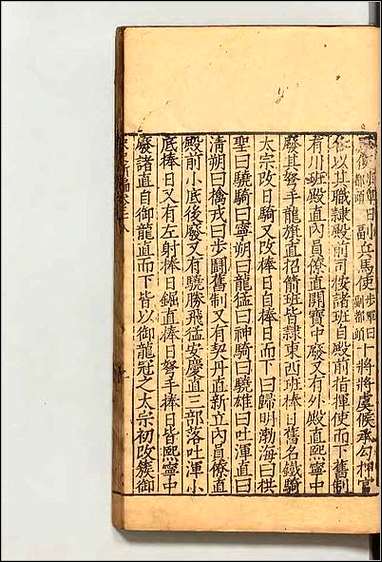 都頭副兵馬使步軍曰副都頭十將將虞候承勾押官
各以其職隸殿前司按諸班自殿前指揮使而下舊制
有川班殿直內員僚直開寶中廢又有外殿直熙寧中
廢其弩手龍旗直招箭班皆隸東西班捧日舊名鐵騎
太宗改曰騎又改捧日自捧日而下曰歸明渤海曰拱
聖曰驍騎曰寧朔曰龍猛曰神騎曰驍雄曰吐渾直曰
清朔曰擒戎曰步鬪舊制又有契丹直新立內員僚直
殿前小底後廢又有驍勝飛猛安慶直三部落吐渾小
底棒日又有左射捧日鋸直捧日弩手捧日皆熙寧中
廢諸直自御龍直而下皆以御龍冠之太宗初改簇御